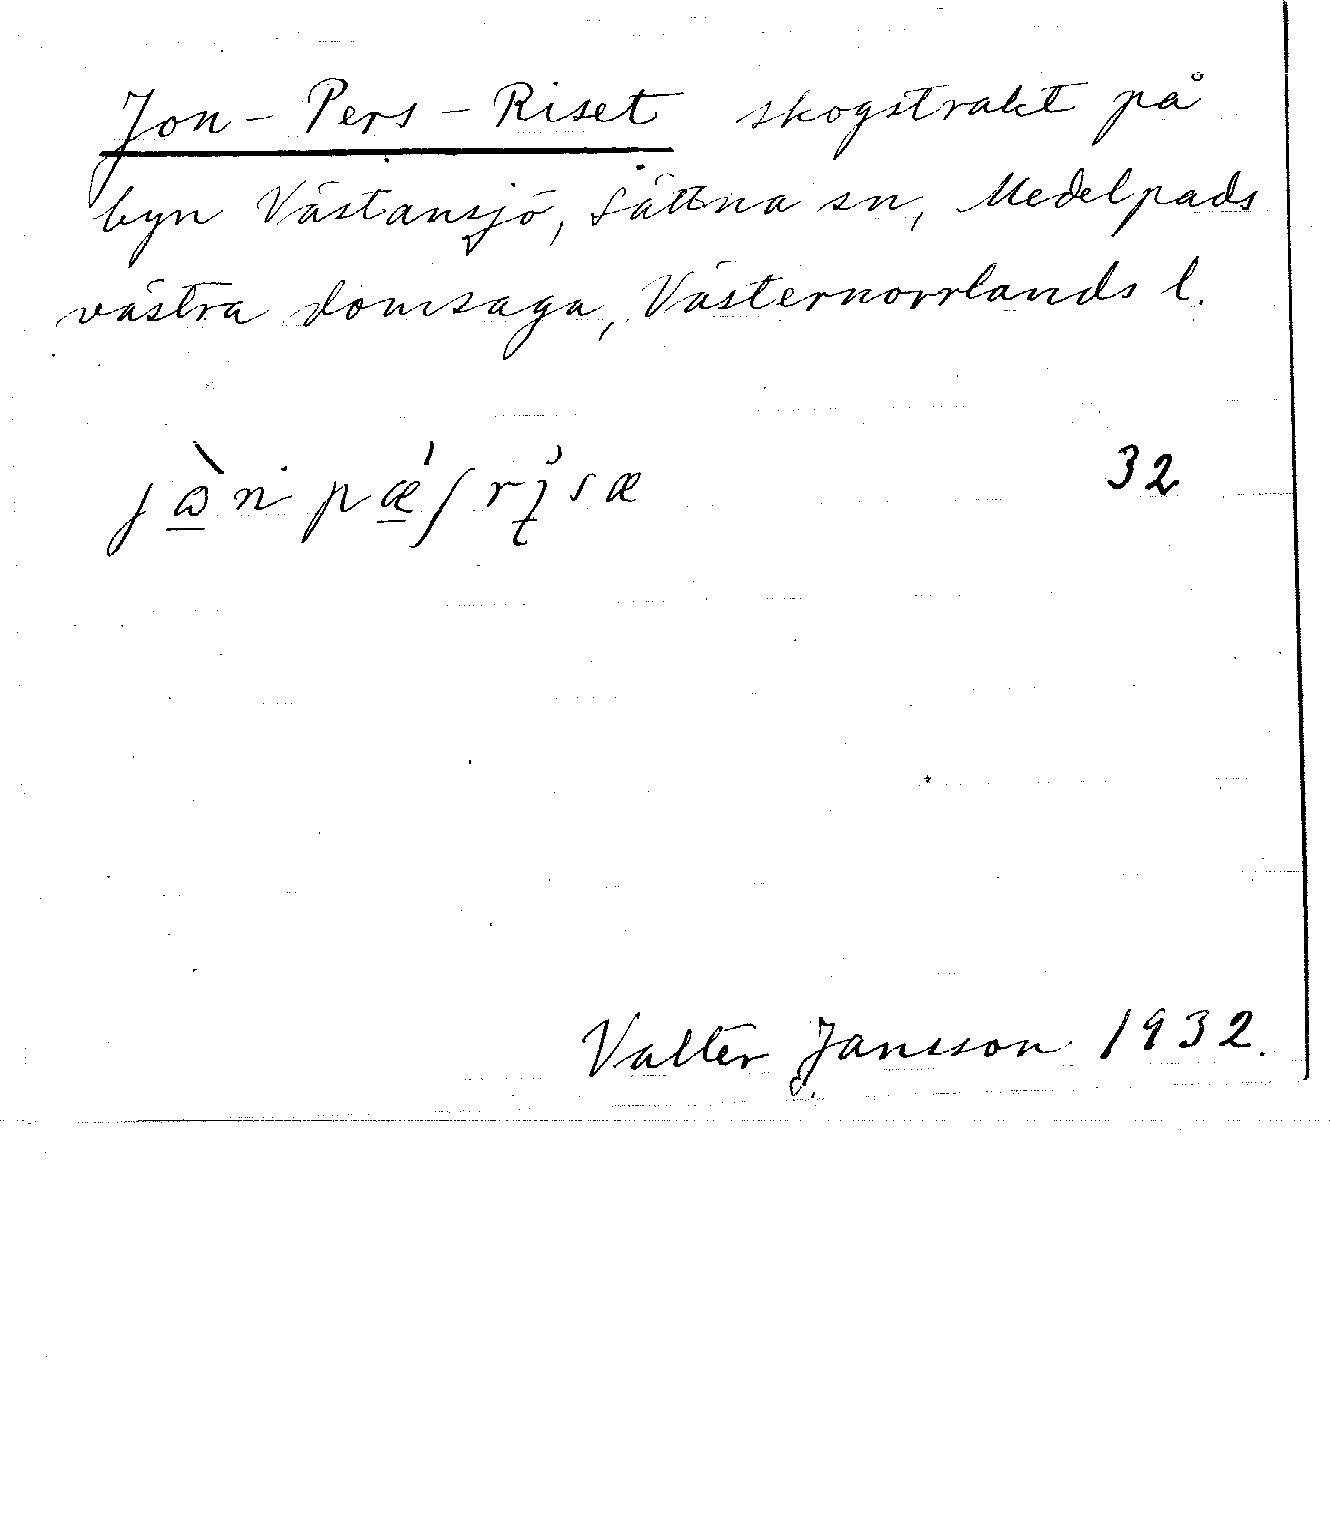 Jon-Pers-Riset skogstrakt på
byn Västansjö, Sättna sn, Medelpads
västra domsaga, Västernorrlands l.
32
Valter Jansson 1932.